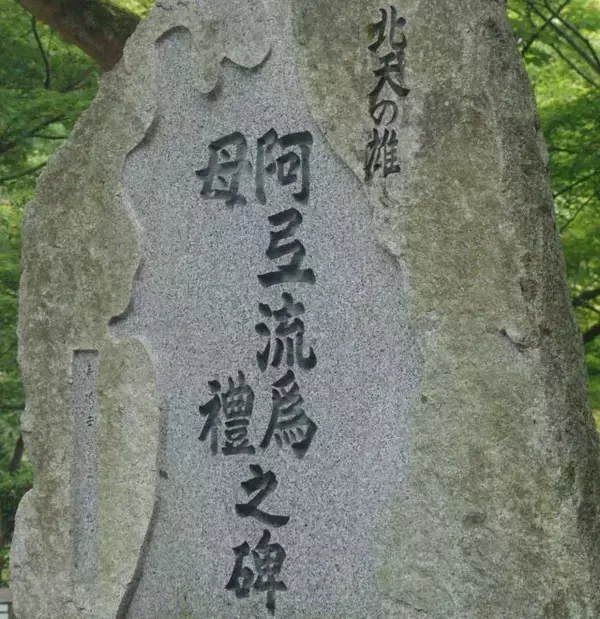 北天の雄
阿弖流為
母禮
之碑